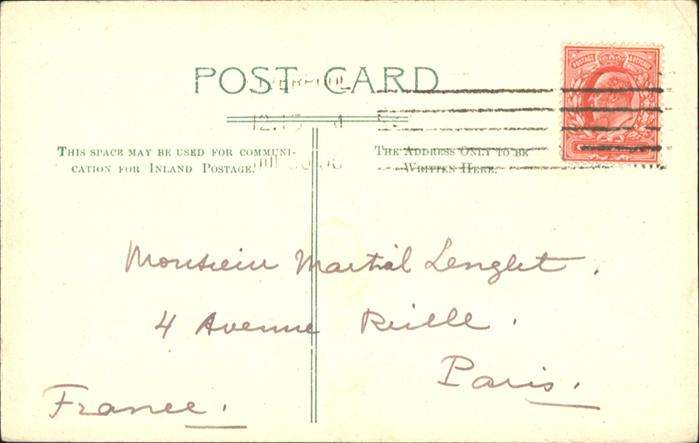 POST CARD
LIVERPOOL
12.15
THIS SPACE MAY BE USED FOR COMMUNI-
CATION FOR INLAND POSTAGE.
THE ADDRESS ONLY TO BE
WRITTEN HERE.
Monsieur Martial Lenglet.
4 Avenue Reille.
Paris.
France.